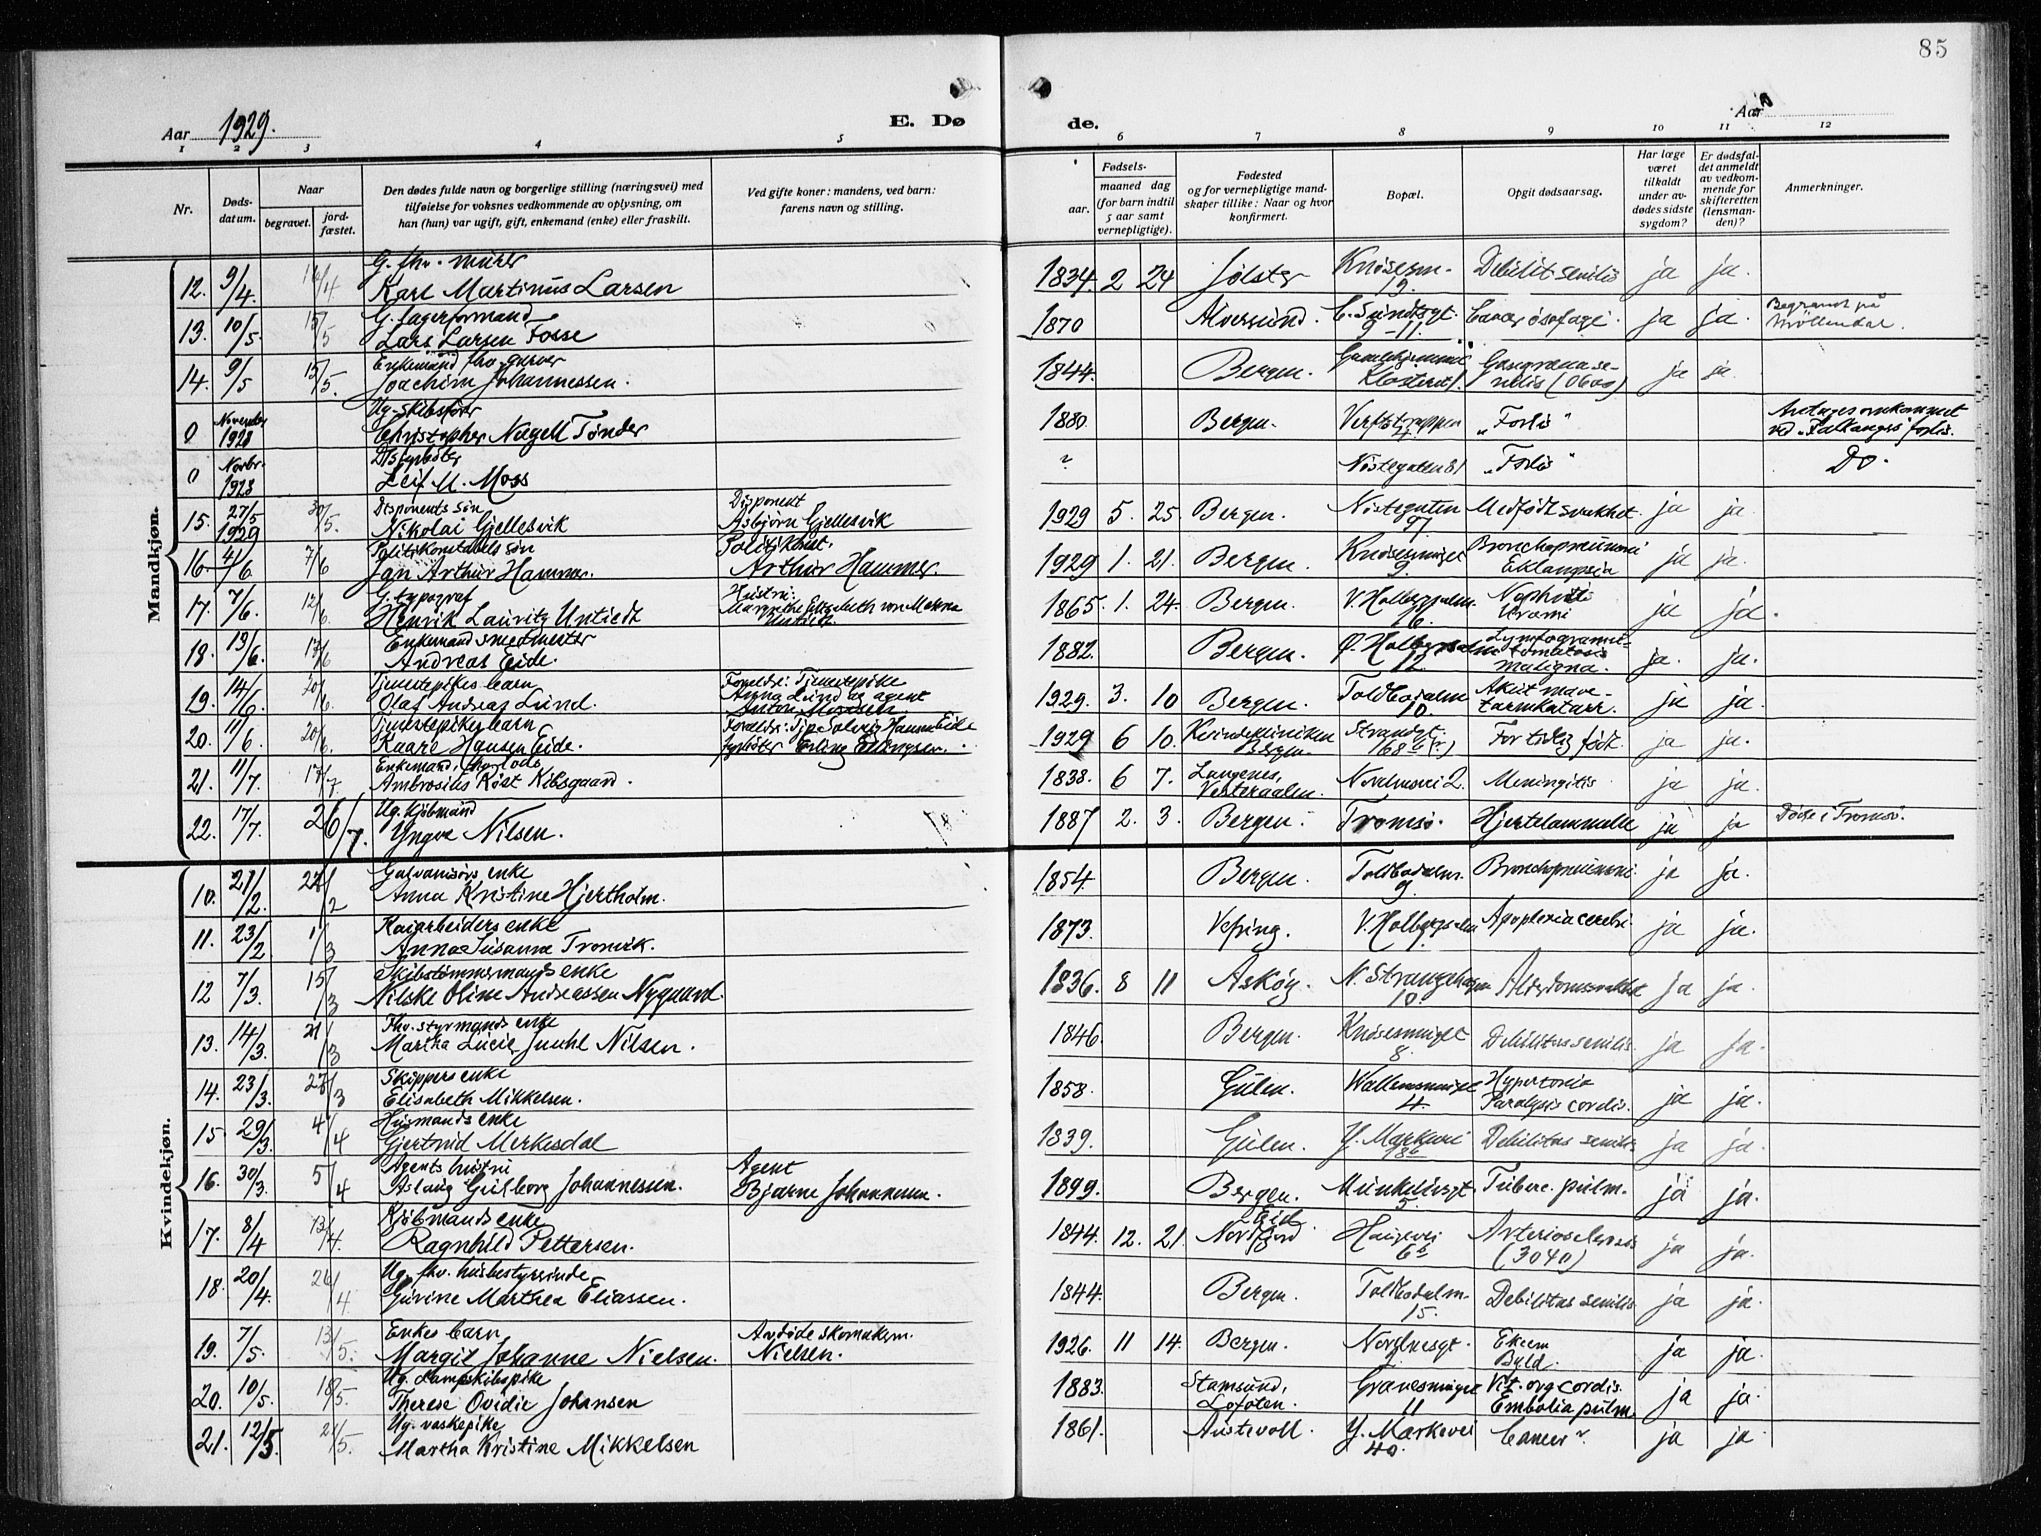 85
Aar 1929.
E. Dø
de.
Aar
1 2 3 4 5 6 7 8 9 10 11 12
Nr.
Døds-
datum.
Naar
begravet.
jord-
fæstet.
Den dødes fulde navn og borgerlige stilling (næringsvei) med
tilføielse for voksnes vedkommende av oplysning, om
han (hun) var ugift, gift, enkemand (enke) eller fraskilt.
Ved gifte koner: mandens, ved barn:
farens navn og stilling.
Fødsels-
aar.
maaned dag
(for barn indtil
5 aar samt
vernepligtige).
Fødested
og for vernepligtige mand-
skaper tillike: Naar og hvor
konfirmert.
Bopæl.
Opgit dødsaarsag.
Har læge
været
tilkaldt
under av-
dødes sidste
sygdom?
Er dødsfal-
det anmeldt
av vedkom-
mende for
skifteretten
(lensman-
den)?
Anmerkninger.
Mandkjøn.
G. fhv. murer
12. 9/4. 14/4 Karl Martinus Larsen 1834 2 24 Jølster Knøsesm. 19. Debilit senilis ja ja.
G. lagerformand
13. 10/5. 15/5 Lars Larsen Fosse 1870 Alversund. C. Sundtsgt. 9-11. Cancer øsofagi. ja ja. Begravet på Møllendal.
Enkemand fhv. garver
14. 9/5 15/5. Joachim Johannessen. 1844. Bergen. Gamlehjemmet Klosteret 1. Gangræna se-
nilis (0600) ja ja.
Ug. skibsfører
0 November 1928 Christopher Nagell Tønder 1880 Bergen. Verftstrappen „Forlis" Antages omkommet
ved „Falkangers" forlis.
Disfyrbøter
0 Novbr. 1928 Leif M. Moss ? Nøstegaten 81 „Forlis" Do.
Disponents søn Disponent
15. 27/5 1929 30/5. Nikolai Gjellesvik Asbjørn Gjellesvik 1929 5. 25. Bergen. Nøstegaten 97 Medfødt svakhet. ja ja.
Politikonstabels søn Politikonst.
16. 4/6. 7/6 Jan Arthur Hammer. Arthur Hammer. 1929 1. 21. Bergen. Knøsesmuget 9. Bronchopneumoni
Eklampsia ja ja.
G. typograf Hustru:
17. 7/6. 12/6. Henrik Lauritz Untiedt Margrethe Elizabeth von Untiedt 1865. 1. 24. Bergen. V. Holbergsalm. 16. Nephritis
Uræmi ja ja.
Enkemand smedmester
18. 13/6. 17/6 Andreas Eide. 1882. Bergen. Ø. Holbergsalm 12. Lymfogranu-
lomatosis
maligna. ja. ja.
Tjenestepikes barn Foreldre: Tjenestepike
19. 14/6. 20/6. Olaf Andreas Lund. Anna Lund og agent
Anton 1929. 3. 10 Bergen. Toldbodalm 10. Akut mave-
tarmkatarr. ja ja.
Tjenestepikes barn Foreldre: Tjp. Solveig Hansen Eide
20. 11/6. 20/6. Kaare Hansen Eide. fyrbøter Erling Ellingsen. 1929 6 10. Kvindeklinikken
Bergen. Strandgt. Fortidlig født. ja ja.
Enkemand, fhv. lods
21. 11/7. 17/7. Ambrosius Røst Kibsgaard. 1838. 6 7. Langenes,
Vesteraalen. Nordnesvei 2. Meningitis ja ja.
Ug. kjøbmand
22. 17/7. 26/7. Yngve Nilsen. 1887 2. 3. Bergen. Tromsø. Hjertelammelse ja ja Døde i Tromsø.
Kvindekjøn.
Galvanisørs enke
10. 21/2. 27/2 Anna Kristine Hjertholm. 1854. Bergen. Toldbodalm. 9. Bronchopneumoni ja ja.
Kaiarbeiders enke
11. 23/2 1/3 Anna Susanna Tronvik. 1873. Vefsing. V. Holbergsalm Apoplexia cerebri. ja ja.
Skibstømmermands enke
12 7/3. 15/3 Nilske Oline Andreassen Nygaard. 1836. 8 11 Askøy. N. Strangehagen 10. Alderdomssvakhet ja ja.
Fhv. styrmands enke
13. 14/3. 21/3 Martha Lucie Juuhl Nilsen. 1846. Bergen. Knøsesmuget 8. Debilitas senilis. ja ja.
Skippers enke
14. 23/3. 27/3 Elisabeth Mikkelsen. 1858. Gulen. Wallemsmuget 4. Hypertonia
Paralysis cordis. ja ja.
Husmands enke
15. 29/3. 4/4 Gjertrud Merkesdal 1839. Gulen. Y. Markevei 18b Debilitas senilis ja ja.
Agents hustru Agent
16. 30/3. 5/4 Aslaug Gulborg Johannessen. Bjarne Johannessen. 1899. Bergen. Munkelivsgt. 5. Tuberc. pulm. ja ja.
Kjøbmands enke
17. 8/4 13/4. Ragnhild Pettersen. 1844. 12. 21. Eid
Nordfjord Haugevei 6b Arteriosclerosis
(3040) ja ja.
Ug. fhv. husbestyrerinde
18. 20/4. 26/4 Gurine Marthea Eliassen. 1844. Bergen. Toldbodalm. 15. Debilitas senilis ja ja.
Enkes barn Avdøde skomakerm.
19. 7/5. 13/5. Margit Johanne Nielsen. Nielsen. 1926. 11 14. Bergen. Nordnesgt. Ekcem
Byld. ja ja.
Ug. Dampskibspike
20. 10/5. 18/5. Therese Ovidie Johansen 1883. Stamsund,
Lofoten. Gravesmuget 11 Vit. org cordis.
Embolia pulm. ja ja.
Ug. vaskepike
21. 12/5. 21/5. Martha Kristine Mikkelsen 1861. Austevoll. Y. Markevei 40. Cancer ? ja ja.